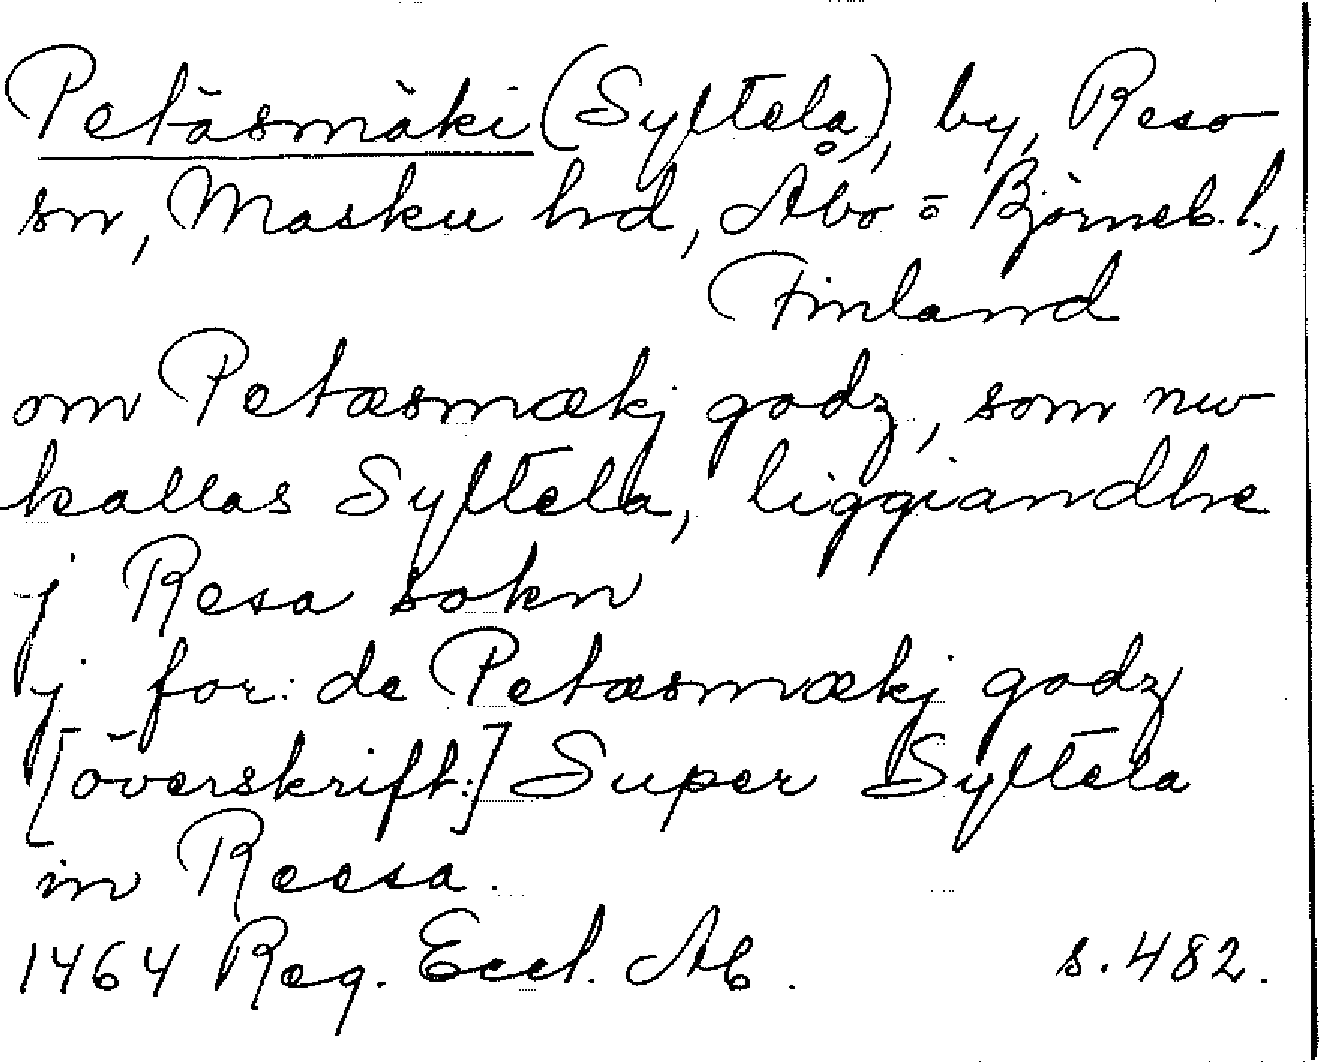 Petäsmäki (Syltela), by, Reso
sn, Masku hd, Åbo = Björneb. l.,
Finland
om Petæsmækj godz, som nw
kallas Syltela, liggiandhe
j Resa sokn
j for: de Petæsmækj godz
[överskrift:] Super Syltela
in Reesa.
1464 Reg. Eccl. Ab. s. 482.